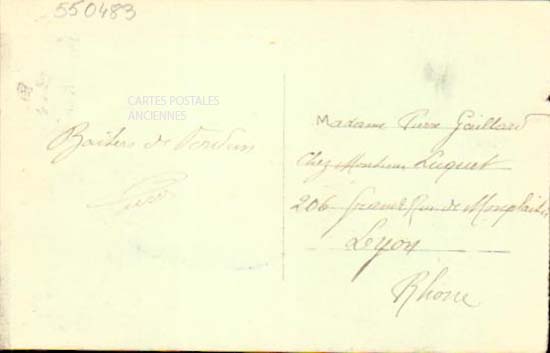 550483
CARTES POSTALES
ANCIENNES
Baisers de
Madame Pierre Gaillard
Chez Monsieur Luquet
206 Grande Rue de Monplaisir
Leyon
Rhone